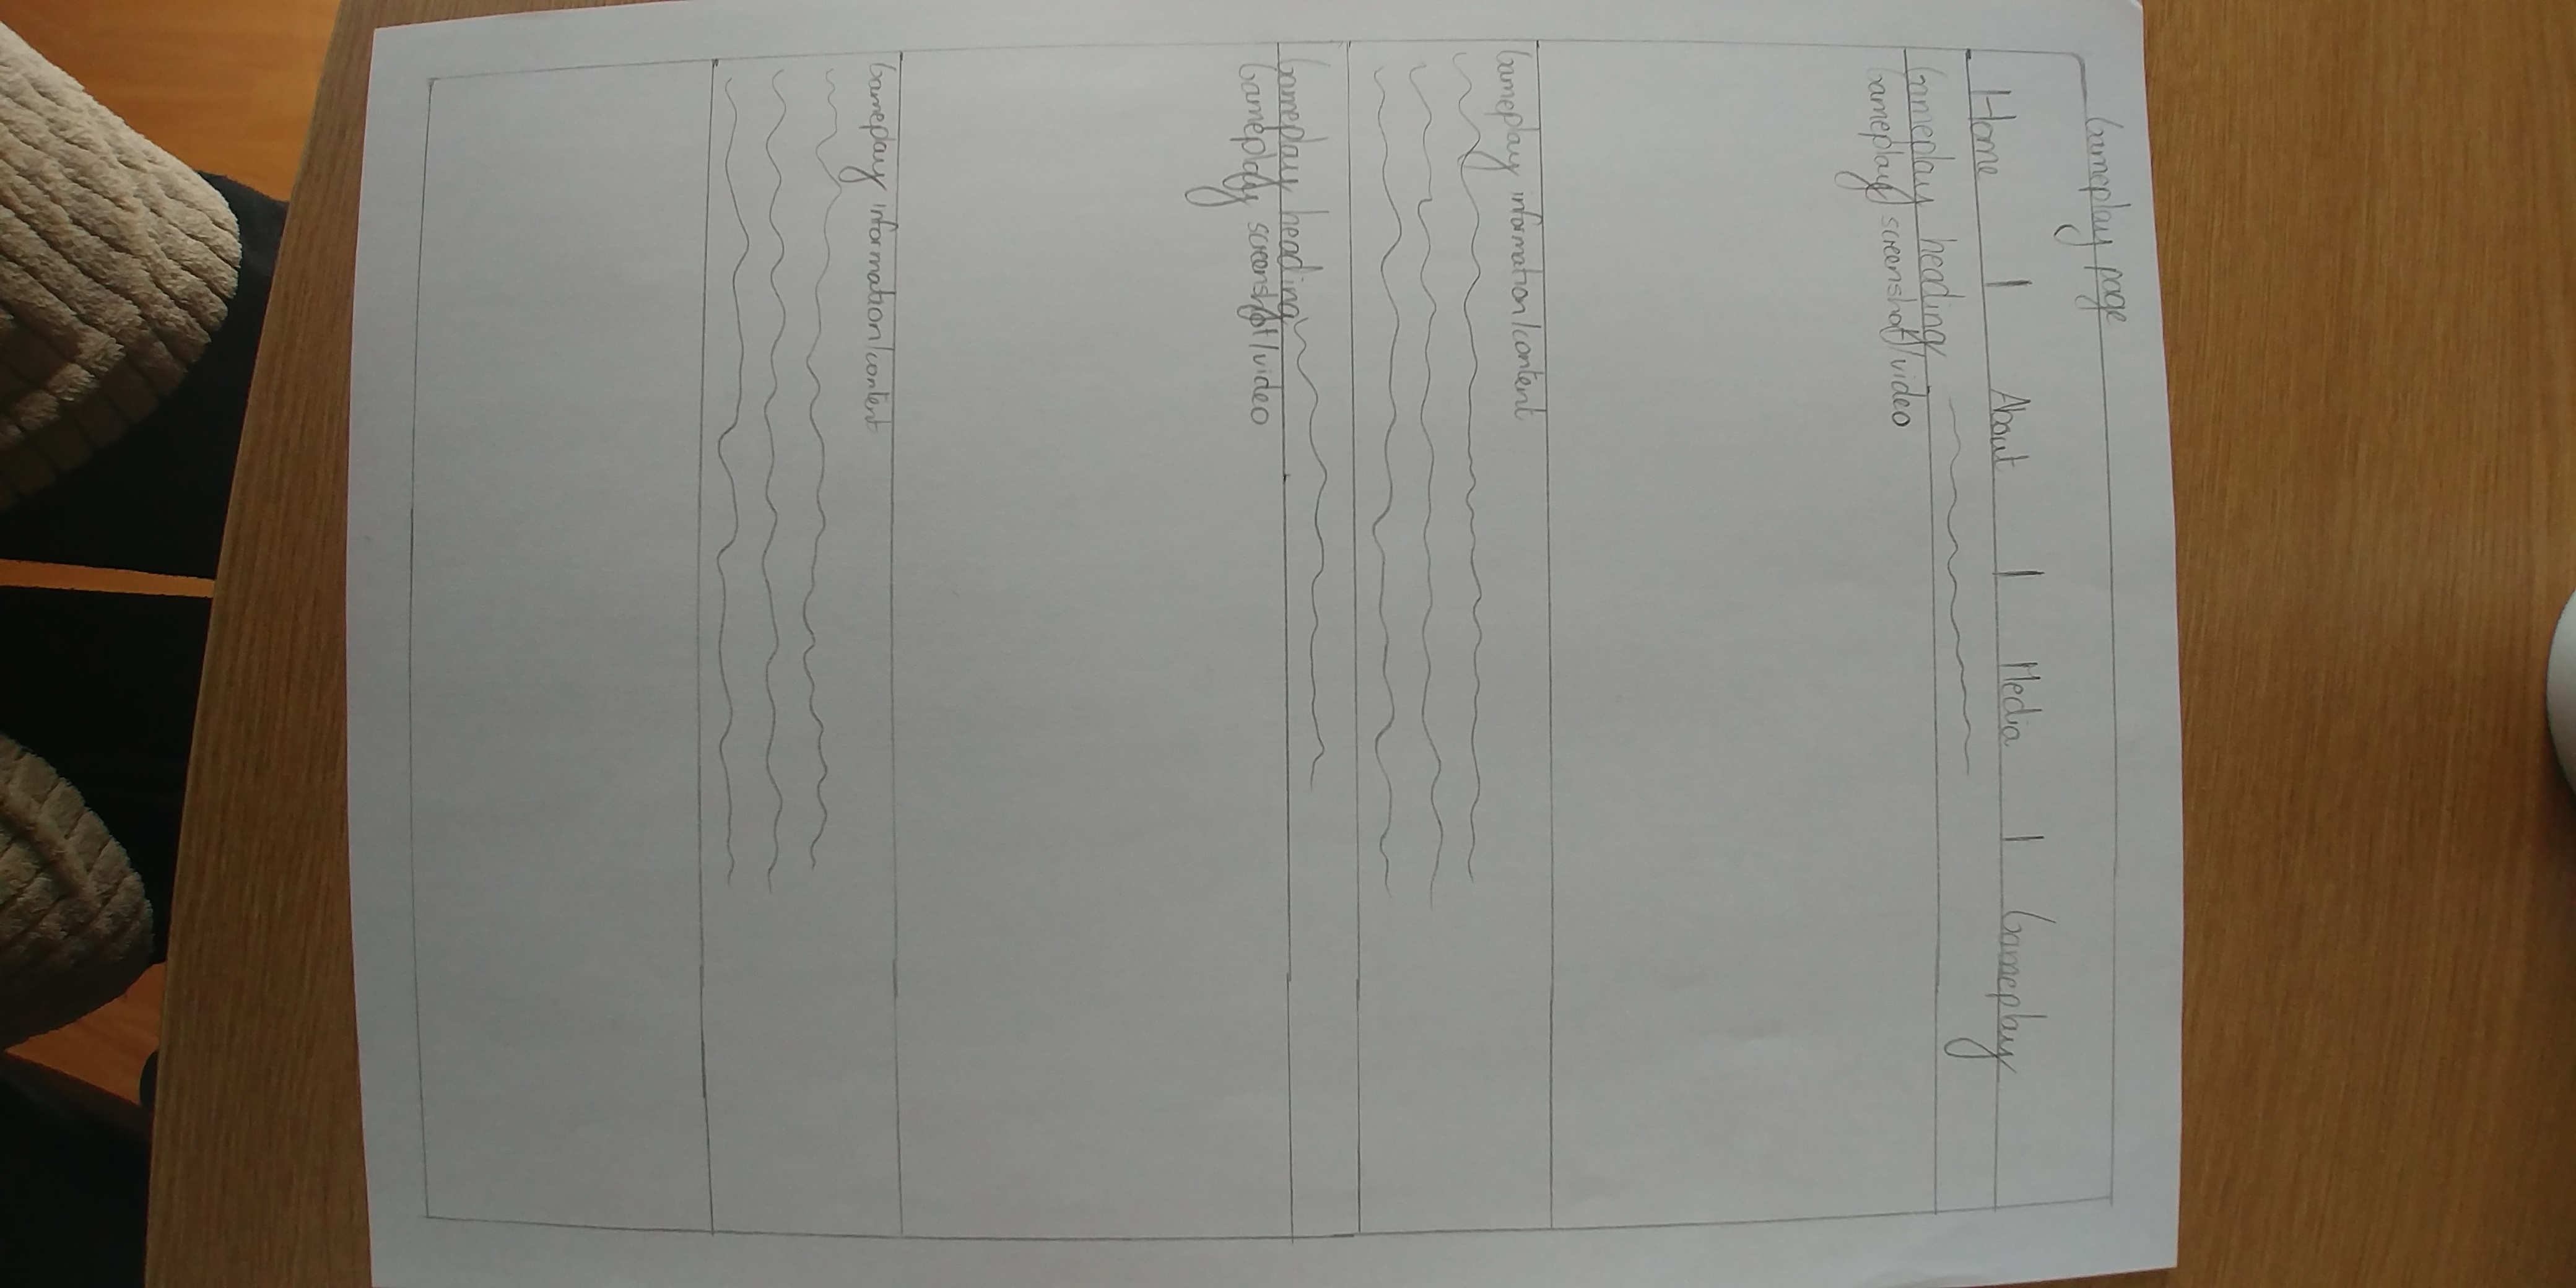 Gameplay page
Home | About | Media | Gameplay
Gameplay heading
Gameplay screenshot/video
Gameplay information/content
Gameplay heading
Gameplay screenshot/video
Gameplay information/content